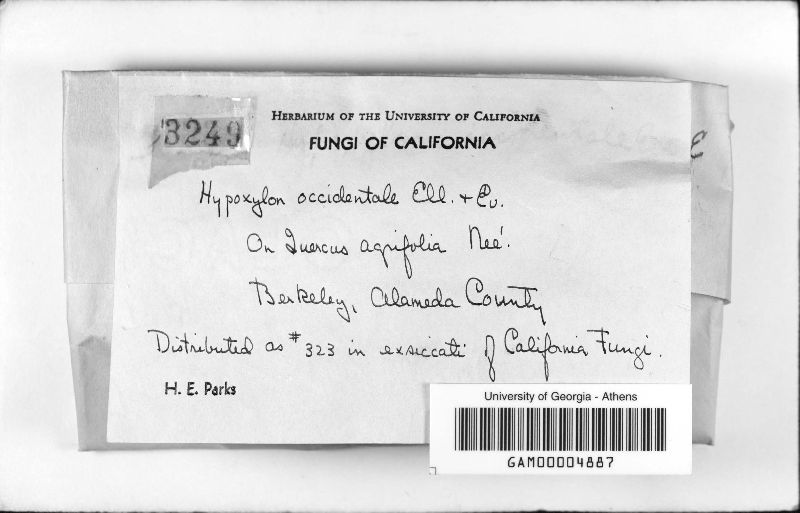 3249
HERBARIUM OF THE UNIVERSITY OF CALIFORNIA
FUNGI OF CALIFORNIA
Hypoxylon occidentale Ell. + Ev.
On Quercus agrifolia Neé.
Berkeley, Alameda County
Distributed as #323 in exsiccati of California Fungi.
H. E. Parks
University of Georgia - Athens
GAM00004887